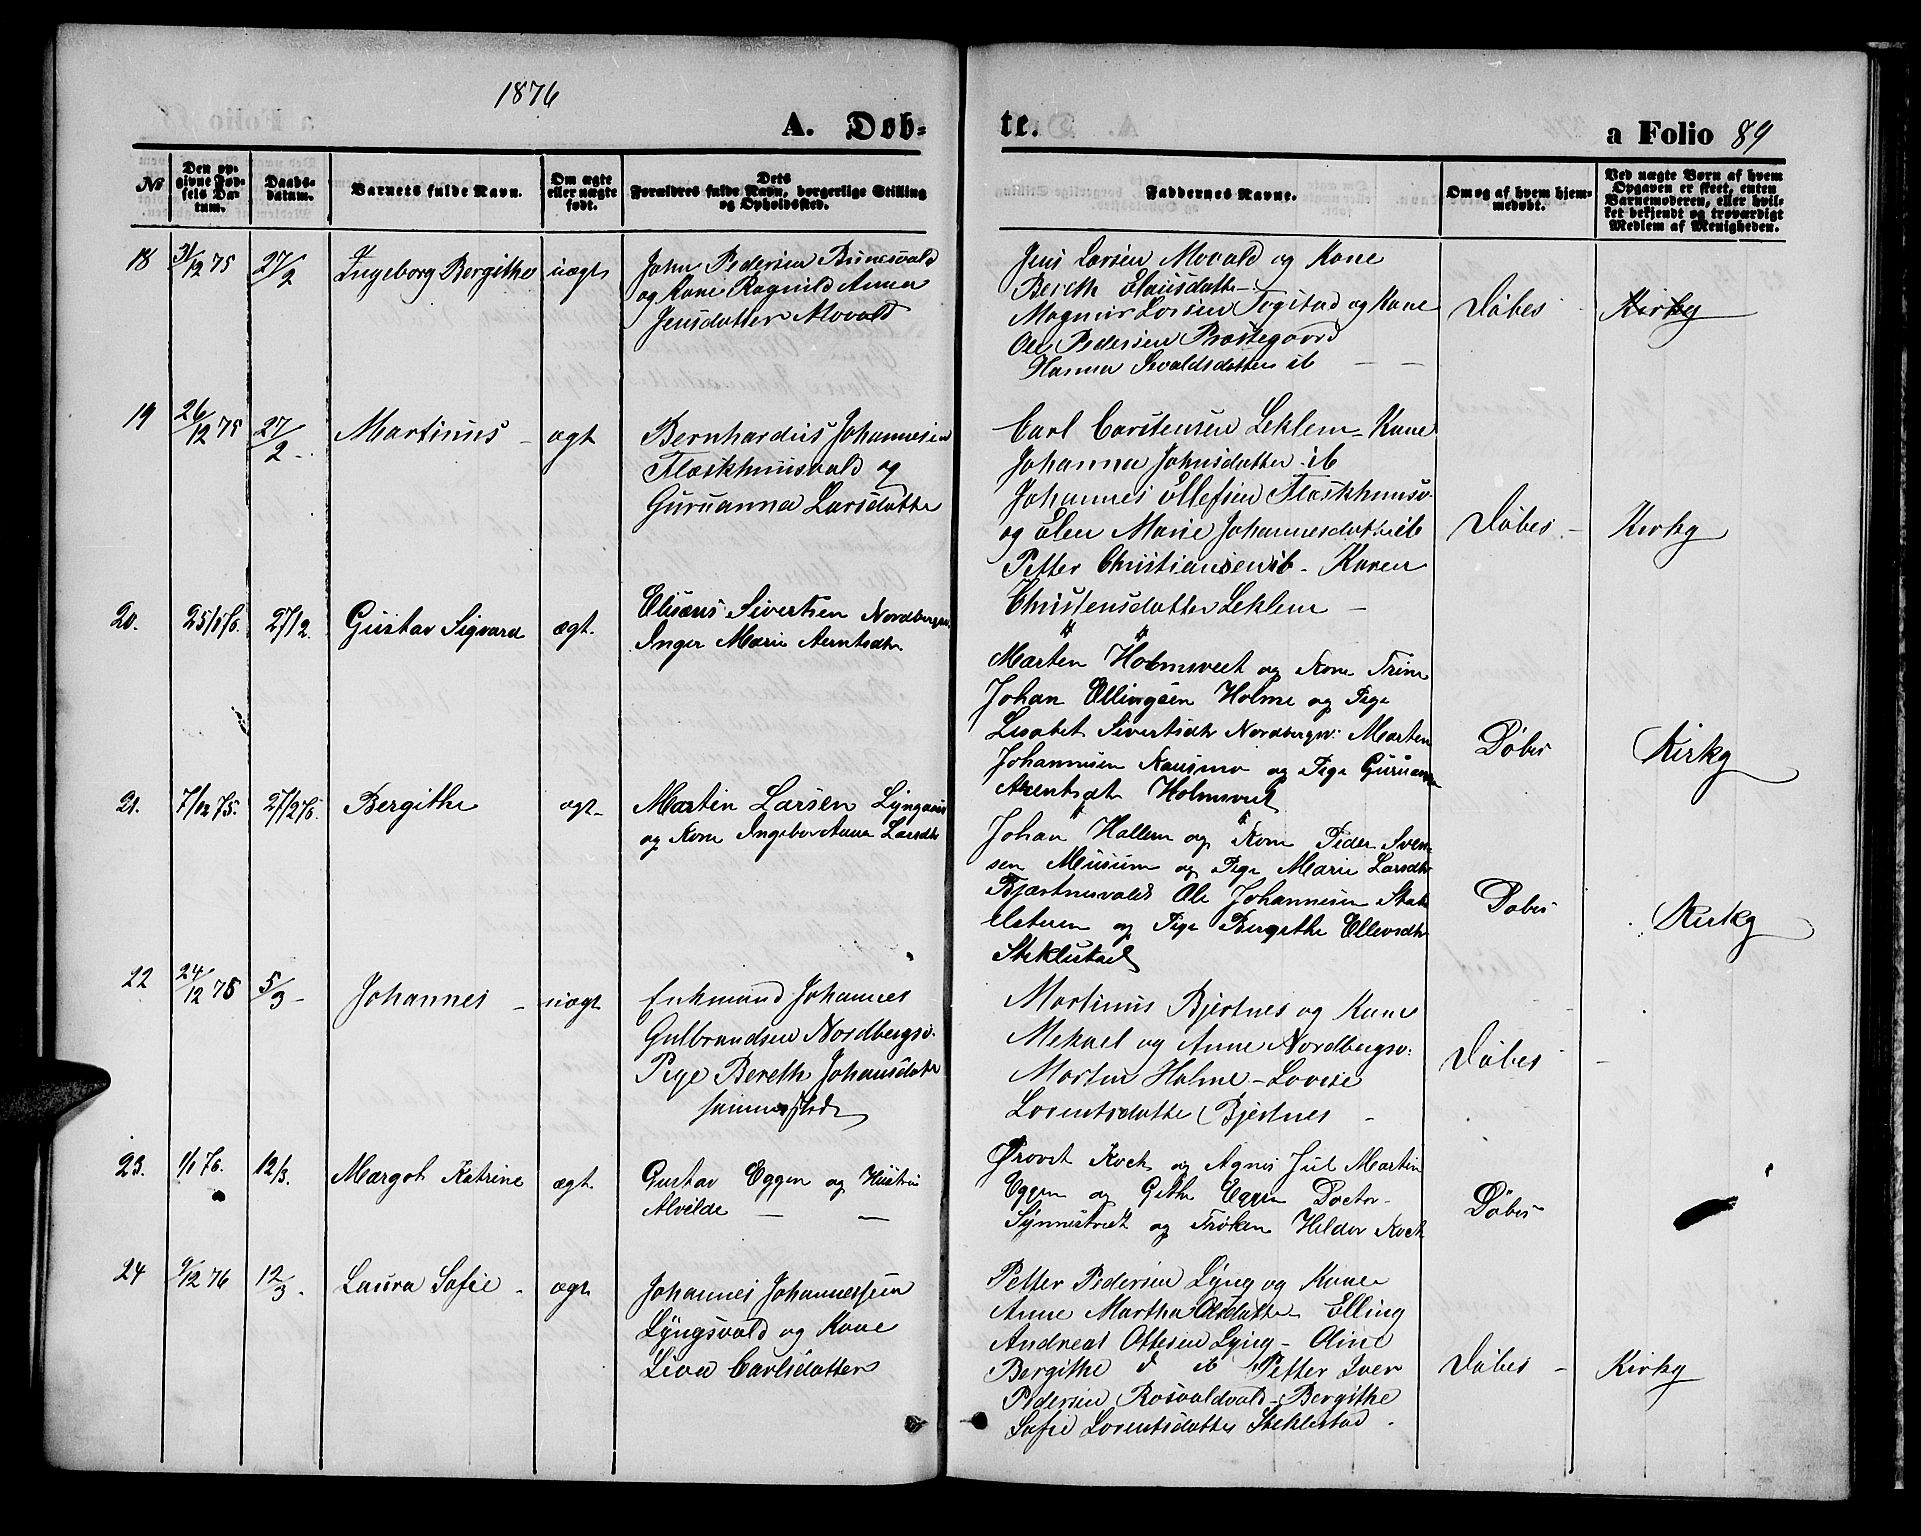 1876
A. Døb-
te.
a Folio 89
No
Den op-
givne Fød-
sels Da-
tum.
Daabs-
datum.
Barnets fulde Navn.
Om ægte
eller uægte
født.
Dets
Forældres fulde Navn, borgerlige Stilling
og Opholdssted.
Faddernes Navne.
Om og af hvem hjem-
medøbt.
Ved uægte Børn af hvem
Opgaven er skeet, enten
Barnemoderen, eller hvil-
ket bekjendt og troværdigt
Medlem af Menigheden.
18 31/12 75 27/2 Ingeborg Bergithe uægt
John Pedersen
og Kone Ragnild Anna
Jensdatter Movald
Jens Larsen Movald og Kone
Bereth
Magnus Larsen Togstad og Kone
Ole Pedersen Præstegaard
Hanna Sivaldsdatter ib
Døbes Kirky
19 26/12 75 27/2 - Martinus - ægt
Bernhardus Johannesen
Flaskhuusvald og
Guruanna Larsdatter
Carl Carstensen Leklem - Kone
Johanna Johnsdatter ib
Johannes Ellefsen Flaskhuusv.
og Elen Marie Johannesdatter ib
Petter Christiansen ib - Karen
Christensdatter Leklem -
Døbes - Kirky
20. 25/1 76. 27/2. Gustav Sigvard ægt.
Elisæus Sivertsen Nordbergsv.
Inger Marie Arntsdtr
Marten Holmsveet og Kone Trine
Johan Ellingsen Holme og Pige
Lisabet Sivertsdtr Nordbergsv: Marten
Johannesen Kausmo og Pige Guruanna
Arentsdt Holmsveet
Døbes Kirky
21. 7/12 75. 27/2 76. Bergithe ægt -
Martin Larsen Lyngaas
og Kone Ingebor Anna Larsdtr
Johan Hallem og Kone Peder Sven
sen Musum og Pige Marie Larsdtr
Bjærtnesvald Ole Johannesen
og Pige Bergithe Ellevsdtr
Steklestad
Døbes Kirky
22 24/12 75 5/3 - Johannes - uægt
Enkemand Johannes
Gulbrandsen Nordbergsv.
Pige Bereth Johansdatter
sammesteds
Martinus Bjertnes og Kone
Mekael og Anne Nordbergsv:
Martin Holme - Lovise
Lorentsdatter Bjertnes -
Døbes -
23. 1/1 76. 12/3. Margot Katrine ægt.
Gustav Eggen og Hustru
Alvilde - -
Provst Koch og Agnes Jul Martin
Eggen og Githe Eggen Doctor
Synnestvedt og Frøken Hilder Koch
Døbes
24 9/12 76 12/3 - Laura Sofie - ægt
Johannes Johannessen
Lyngsvald og Kone
Lisa Carlsdatter
Petter Pedersen Lyng og Kone
Anne Martha Olsdatter Elling
Andreas Ottesen Lyng - Oline
Bergithe d ib Petter Iver
Pedersen Rosvaldvald - Bergithe
Sofie Lorentsdatter Steklestad -
Døbes - Kirky